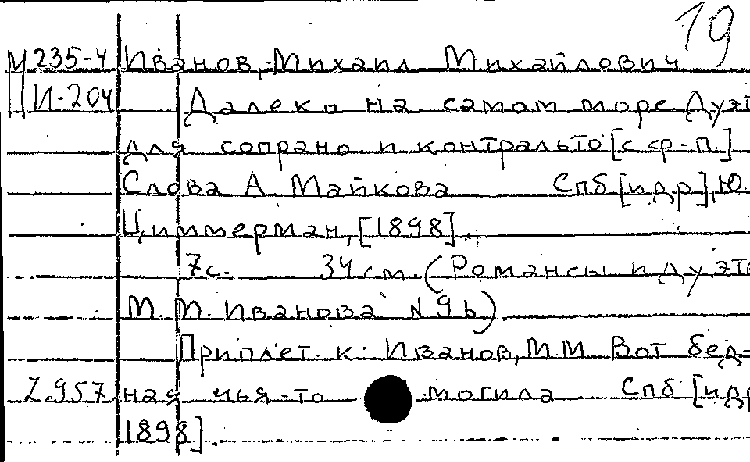 19
М 235-4 Иванов, Михаил Михайлович
Ц И-204 Далеко на самом море Дуэт
для сопрано и контральто [с ср-п.]
Слова А. Майкова Спб [и др], Ю.
Циммерман, [1898].
7с. 34 см. (Романсы и дуэты
М. М. Иванова N 9b)
Приплет к: Иванов, М М Вот бед-
2.957 ная чья-то могила Спб [и др
1898].